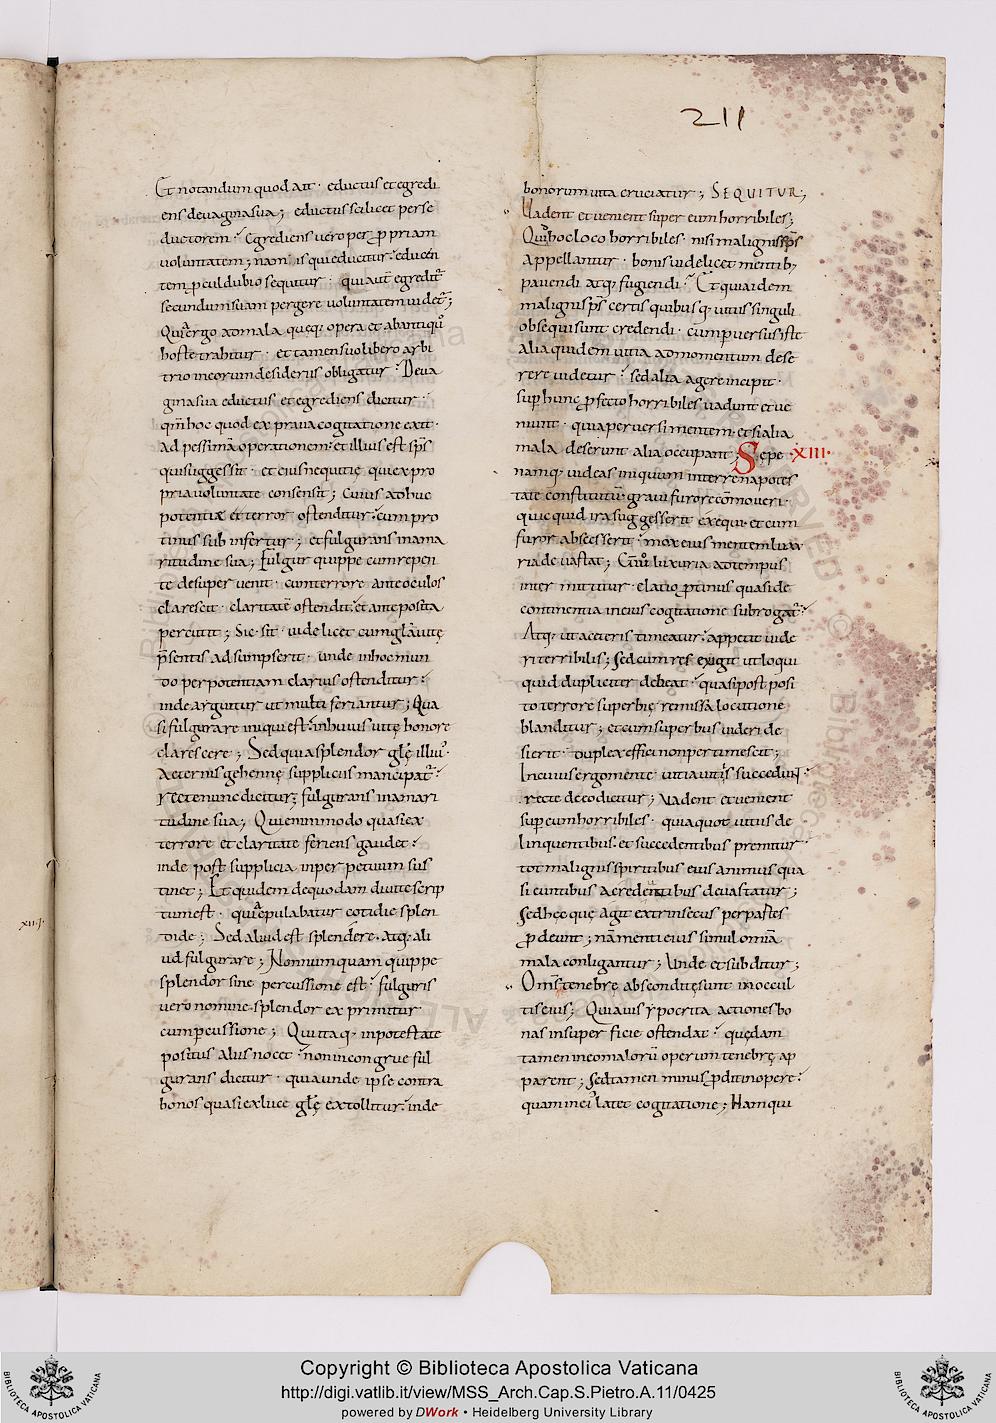 211
Et notandum quod ait · eductus et egredi
ens de vagina sua; eductus scilicet per se
ductorem · Egrediens vero per ppriam
voluntatem; nam is qui educitur · educen
tem pculdubio sequitur · qui aut egredit
secundum suam pergere voluntatem videt;
Qui ergo ad mala queq; opera et ab antiquo
hoste trahitur · et tamen suo libero arbi
trio in eorum desideriis obligatur · De va
gina sua eductus et egrediens dicitur ·
qm hoc quod ex prava cogitatione exit ·
ad pessimā operationem · et illius est sps
qui suggessit · et eius nequitię qui ex pro
pria voluntate consensit; Cuius adhuc
potentiæ et terror ostenditur · cum pro
tinus sub infertur; et fulgurans in ama
ritudine sua; Fulgur quippe cum repen
te desuper venit · cum terrore ante oculos
clarescit · claritatē ostendit · et ante posita
percutit; Sic · sit · videlicet cum glā vitę
psentis adsumpserit · unde in hoc mun
do per potentiam clarius ostenditur ·
inde arguitur ut multi feriantur; Qua
si fulgurare iniqui est · in huius vitę honore
clarescere; Sed quia splendor glę illiu ·
Aeternis gehennę suppliciis mancipat ·
recte nunc dicitur; fulgurans in amari
tudine sua; Qui enim modo quasi ex
terrore et claritate feriens gaudet ·
inde post supplicia in perpetuum sus
tinet; Et quidem de quodam divite scrip
tum est · quia epulabatur cotidie splen
dide; Sed aliud est splendere · Atq; ali
ud fulgurare; Nonnumquam quippe
splendor sine percussione est · fulguris
vero nomine splendor ex primitur
cum pcussione; Qui itaq; in potestate
positus aliis nocet · non incongrue ful
gurans dicitur · quia unde ipse contra
bonos quasi ex luce glę extollitur · inde
bonorum vita cruciatur; SEQUITUR;
Vadent et venient super eum horribiles;
Qui hoc loco horribiles · nisi maligni sps
Appellantur · bonis videlicet mentib;
pavendi atq; fugiendi · Et quia idem
maligni sps certis quibusq; vitiis singuli
obsequi sunt credendi · Cum pversus iste
alia quidem vitia ad momentum dese
rere videtur · sed alia agere incipit ·
sup hunc pfecto horribiles vadunt et ve
niunt · quia perversi mentem · et si alia
mala deserunt alia occupant; Sępe · XIII ·
namq; videas iniquum in terrena potes
tate constitutū · gravi furore cōmoveri ·
quicquid ira suggesserit exequi · et cum
furor abscesserit · mox eius mentem luxu
ria devastat; Cum luxuria ad tempus
intermittitur · elatio ptinus quasi de
continentia in eius cogitatione subrogat ·
Atq; ut a ceteris timeatur · appetit vide
ri terribilis; Sed cum res exigit ut loqui
quid dupliciter debeat · quasi post posi
to terrore superbię remissa locutione
blanditur; et cum superbus videri de
sierit · duplex effici non pertimescit;
In cuius ergo mente vitia vitiis succedun ·
recte de eo dicitur; Vadent et venient
sup eum horribiles · quia quot vitiis de
linquentibus · et succedentibus premitur ·
tot malignis spiritibus eius animus qua
si euntibus ac redeuntibus devastatur;
Sed hęc quę agit extrinsecus per partes
pdeunt; nā menti eius simul omia
mala conligantur; Unde et subditur;
Oms tenebre absconditę sunt in occul
tis eius; Quia vis ypocrita actiones bo
nas in superficie ostendat · quędam
tamen in eo malorū operum tenebrę ap
parent; Sed tamen minus pdit in opere ·
quam in ei latet cogitatione; Nam qui
Copyright © Biblioteca Apostolica Vaticana
http://digi.vatlib.it/view/MSS_Arch.Cap.S.Pietro.A.11/0425
powered by DWork • Heidelberg University Library
BIBLIOTECA APOSTOLICA VATICANA
BIBLIOTECA APOSTOLICA VATICANA